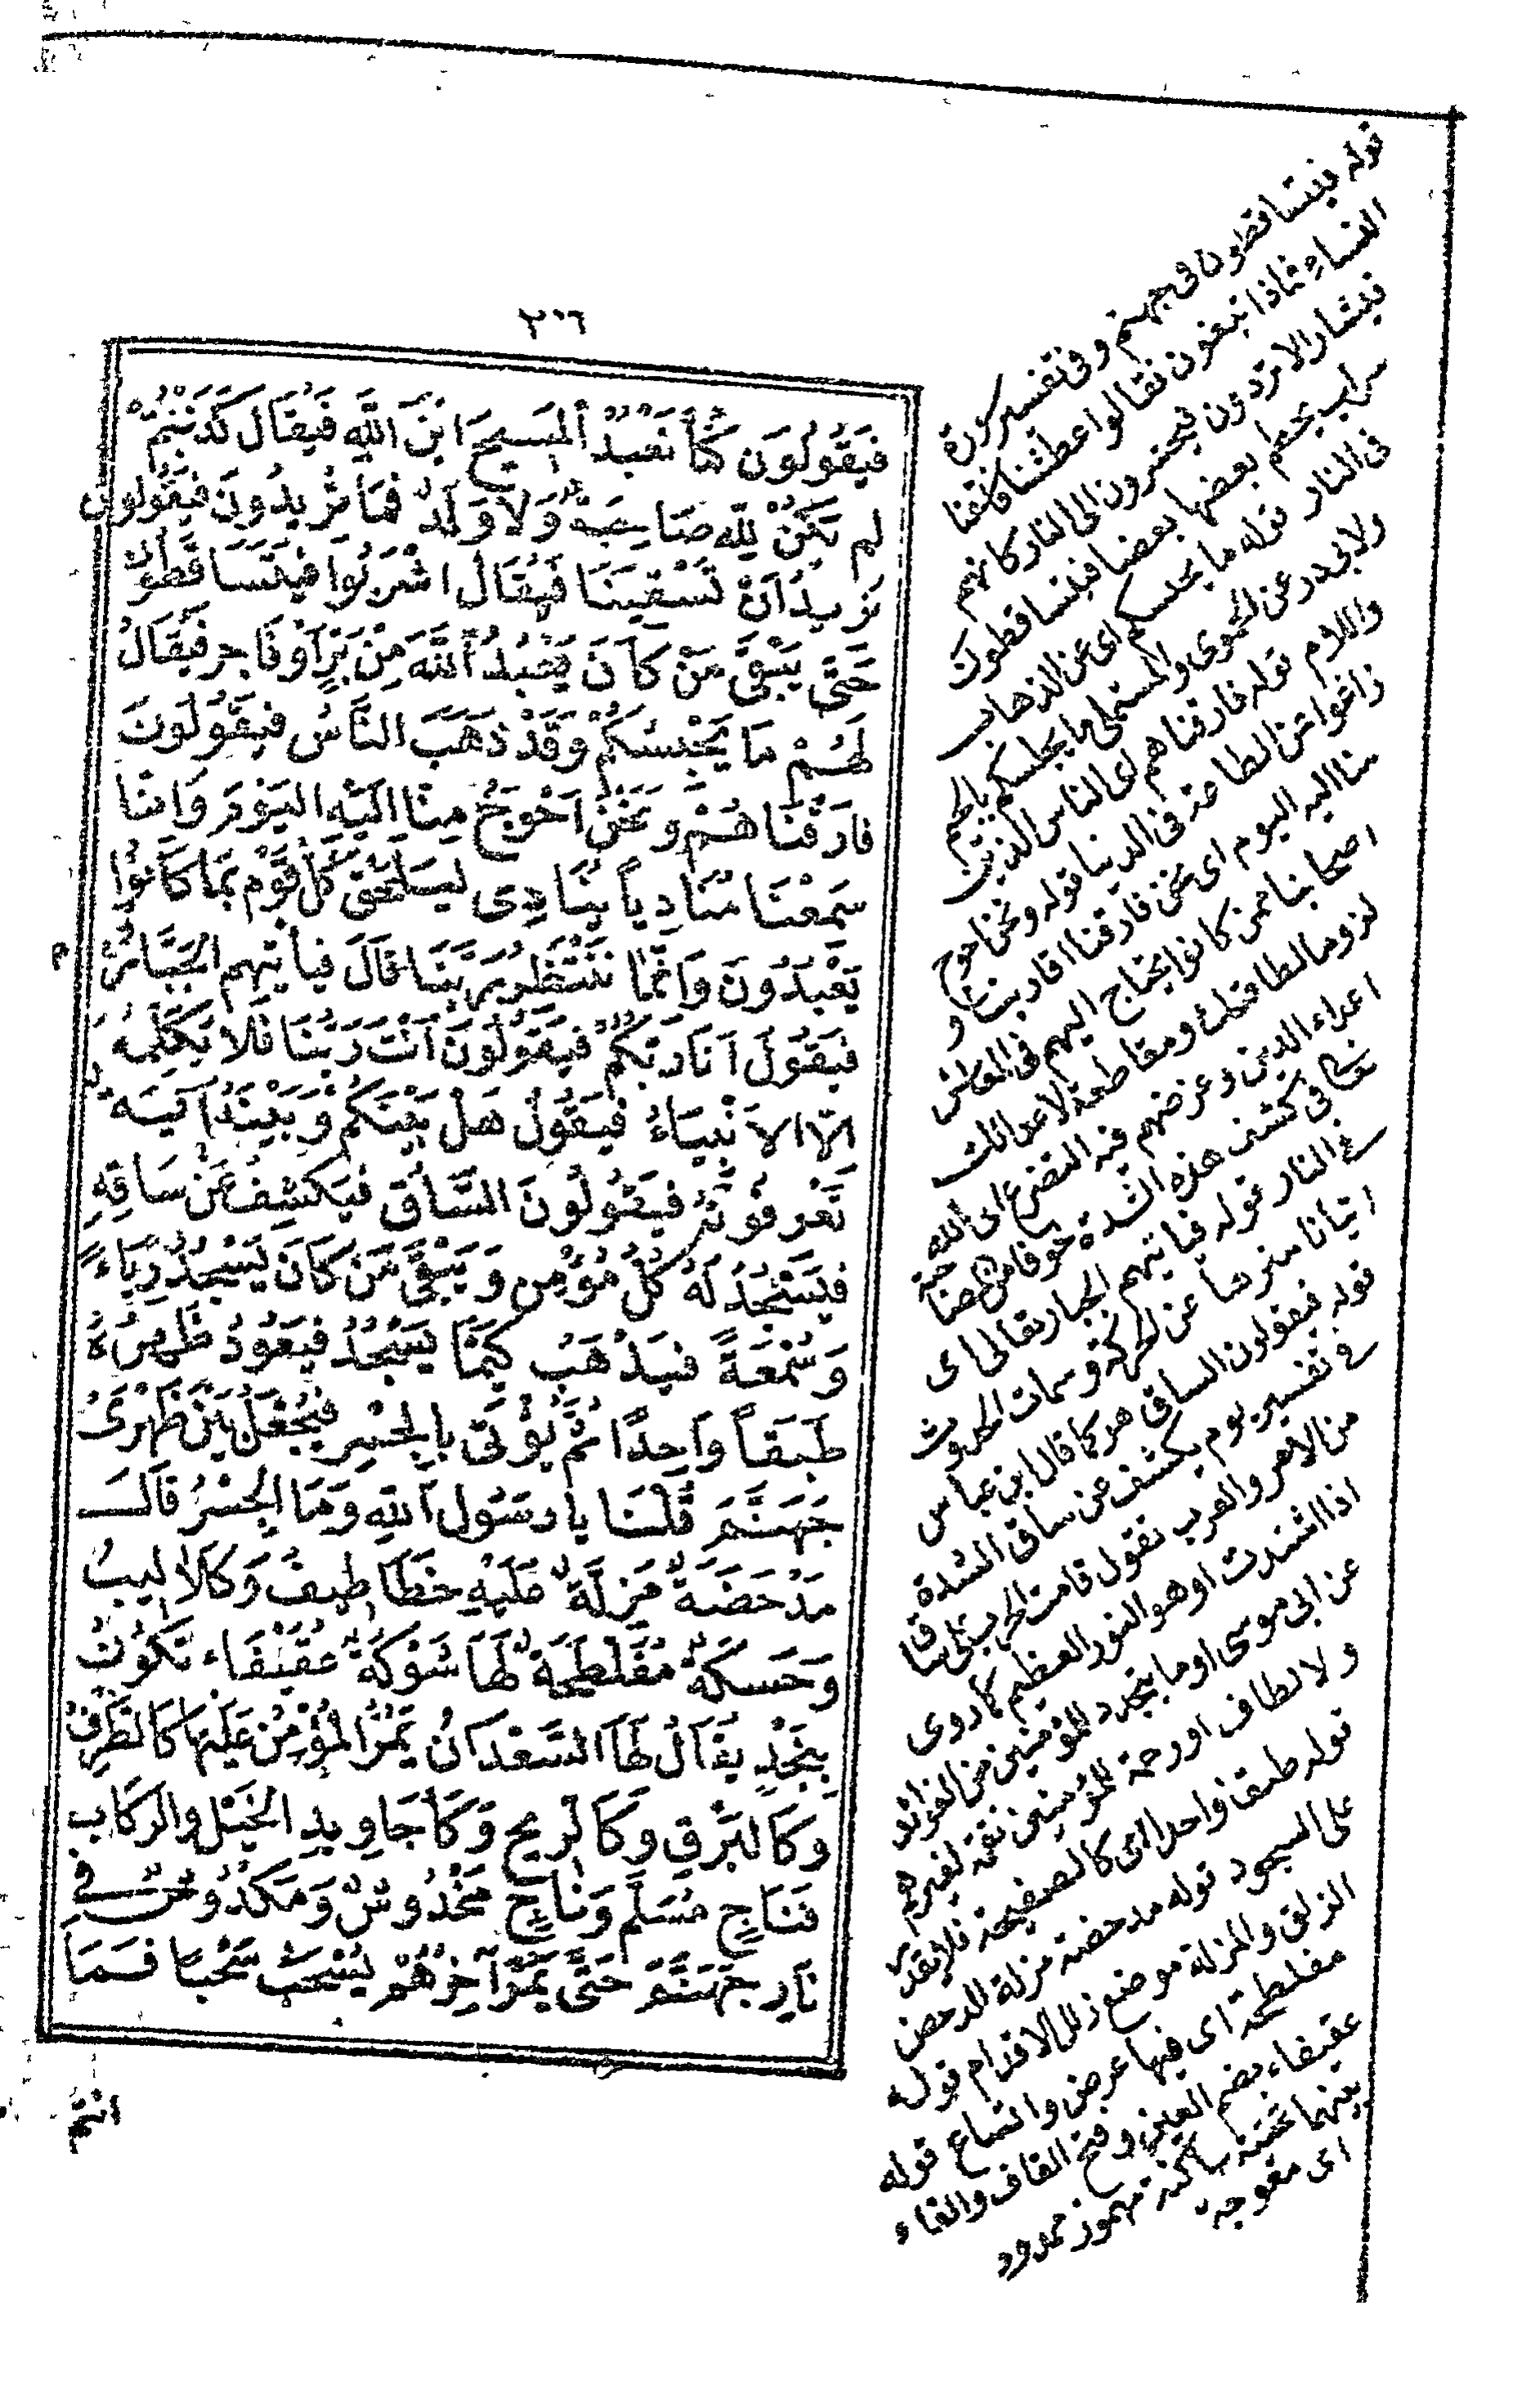 ٣٠٦
فَيَقُولُونَ كُنَّا نَعْبُدُ الْمَسِيحَ ابْنَ اللّٰهِ فَيُقَالُ كَذَبْتُمْ
لم يَكُنْ لِلّٰهِ صَاحِبَةٌ وَلَا وَلَدٌ فَمَا تُرِيدُونَ فَيَقُولُونَ
نُرِيدُ اَنْ تَسْقِيَنَا فَيُقَالُ اشْرَبُوا فَيَتَسَاقَطُونَ
حَتَّى يَبْقَى مَنْ كَانَ يَعْبُدُ اللّٰهَ مِنْ بَرٍّ اَوْ فَاجِرٍ فَيُقَالُ
لَهُمْ مَا يَحْبِسُكُمْ وَقَدْ ذَهَبَ النَّاسُ فَيَقُولُونَ
فَارَقْنَاهُمْ وَنَحْنُ اَحْوَجُ مِنَّا اِلَيْهِ الْيَوْمَ وَاِنَّا
سَمِعْنَا مُنَادِياً يُنَادِى لِيَلْحَقْ كُلُّ قَوْمٍ بِمَا كَانُوا
يَعْبُدُونَ وَاِنَّمَا نَنْتَظِرُ رَبَّنَا قَالَ فَيَأْتِيهِم الْجَبَّارُ
فَيَقُولُ اَنَا رَبُّكُمْ فَيَقُولُونَ اَنْتَ رَبُّنَا فَلَا يُكَلِّمُهُ
اِلَّا الْاَنْبِيَاءُ فَيَقُولُ هَلْ بَيْنَكُمْ وَبَيْنَهُ آيَةٌ
تَعْرِفُونَهُ فَيَقُولُونَ السَّاقُ فَيَكْشِفُ عَنْ سَاقِهِ
فَيَسْجُدُ لَهُ كُلُّ مُؤْمِنٍ وَيَبْقَى مَنْ كَانَ يَسْجُدُ رِيَاءً
وَسُمْعَةً فَيَذْهَبُ كَيْمَا يَسْجُدُ فَيَعُودُ ظَهْرُهُ
طَبَقاً وَاحِدًا ثُمَّ يُؤْتَى بِالْجِسْرِ فَيُجْعَلُ بَيْنَ ظَهْرَىْ
جَهَنَّمَ قُلْنَا يا رَسُولَ اللّٰهِ وَمَا الْجِسْرُ قَالَ
مَدْحَضَةٌ مَزِلَّةٌ عَلَيْهِ خَطَاطِيفُ وَكَلَالِيبُ
وَحَسَكَةٌ مُفَلْطَحَةٌ لَهَا شَوْكَةٌ عُقَيْفَاء تَكُونُ
بِنَجْدٍ يُقَالُ لَهَا السَّعْدَانُ يَمُرُّ الْمُؤْمِنُ عَلَيْهَا كَالطَّرْفِ
وَكَالْبَرْقِ وَكَالرِّيحِ وَكَأَجَاوِيدِ الْخَيْلِ وَالرِّكَابِ
فَنَاجٍ مُسَلَّمٌ وَنَاجٍ مَخْدُوشٌ وَمَكْدُوسٌ فِى
نَارِ جَهَنَّمَ حَتَّى يَمُرَّ آخِرُهُمْ يُسْحَبُ سَحْباً فَمَا
انتم
قوله فيتساقطون فى جهنم وفى تفسير سورة
النساء فماذا تبغون فقالوا عطشنا فاسقنا
فيشار الا تردون فيحشرون الى النار كانهم
سراب يحطم بعضها بعضا فيتساقطون
فى النار قوله ما يحبسكم اى عن الذهاب
ولابى ذر عن الحموى والمستملى ما يجلسكم بالجيم
واللام قوله فارقناهم اى الناس الذين
زاغوا عن الطاعة فى الدنيا قوله ونحن احوج
منا اليه اليوم اى نحن فارقنا اقاربنا و
اصحابنا ممن كانوا يحتاج اليهم فى المعاش
لزوما لطاعتك ومقاطعة لاعدائك
اعداء الدين وغرضهم فيه التضرع الى الله
تعالى فى كشف هذه الشدة خوفا من المصاحبة
فى النار قوله فيأتيهم الجبار تعالى اى
اتيانا منزها عن الحركة وسمات الحدوث
قوله فيقولون الساق هو كما قال ابن عباس
فى تفسير يوم يكشف عن ساق الشدة
من الامر والعرب تقول قامت الحرب على ساق
اذا اشتدت او هو النور العظيم كما روى
عن ابى موسى او ما يتجدد للمؤمنين من الفوائد
والالطاف او رحمة للمؤمنين نقمة لغيرهم
قوله طبقا واحدا اى كالصفيحة فلا يقدر
على السجود قوله مدحضة مزلة الدحض
الزلق والمزلة موضع زلل الاقدام قوله
مفلطحة اى فيها عرض واتساع قوله
عقيفاء بضم العين وفتح القاف والفاء
بينهما تحتية ساكنة مهموز ممدود
اى معوجة